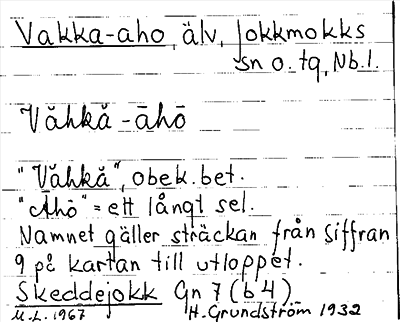 Vakka-aho, älv, Jokkmokks
sn o. tg, Nb.l.
Văhkă -āhō
"Văhkă", obek. bet.
"Ahō" = ett långt sel.
Namnet gäller sträckan från siffran
9 på kartan till utloppet.
Skeddejokk Gn 7 (b 4)
M.L. 1967 H. Grundström 1932